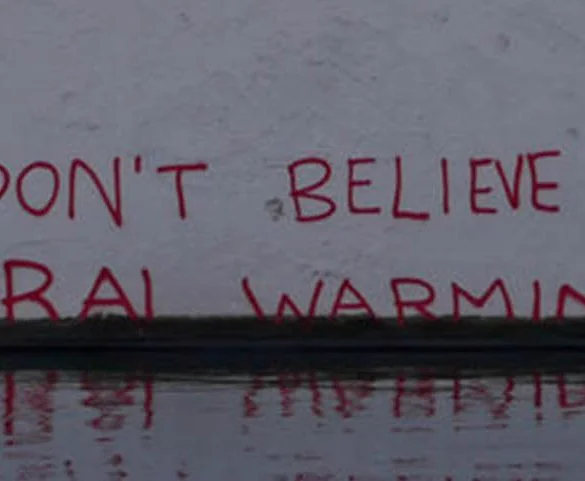 DON'T BELIEVE
BAL WARMIN